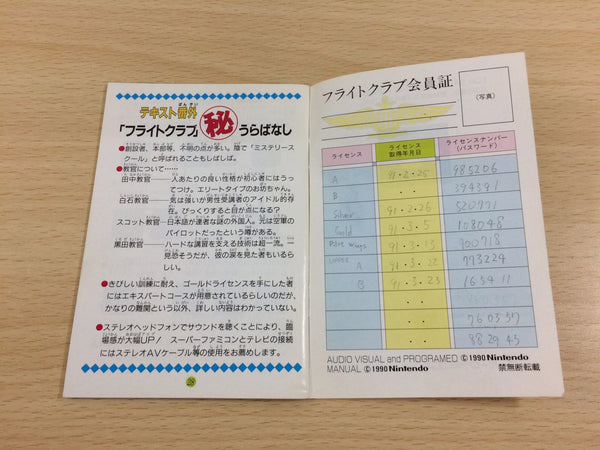 テキスト番外
「フライトクラブ」㊙うらばなし
●創設者、本部等、不明の点が多い。陰で「ミステリース
クール」と呼ばれることもしばしば。
●教官について……
田中教官――人あたりの良い性格が初心者にはうっ
てつけ。エリートタイプのお坊ちゃん。
白石教官――気は強いが男性受講者のアイドル的存
在。びっくりすると目が点になる?
スコット教官―日本語が達者な謎の外国人。元は空軍の
パイロットだったという噂がある。
黒田教官――ハードな講習を支える技術は超一流。一
見恐そうだが、彼の涙を見た者もいるら
しい。
●きびしい訓練に耐え、ゴールドライセンスを手にした者
にはエキスパートコースが用意されているらしいのだが、
かなりの難関という以外、詳しい内容はわかっていない。
●ステレオヘッドフォンでサウンドを聴くことにより、臨
場感が大幅UP! スーパーファミコンとテレビの接続
にはステレオAVケーブル等の使用をお薦めします。
28
フライトクラブ会員証
(写真)
ライセンス ライセンス取得年月日 ライセンスナンバー(パスワード)
A 91・2・25 985206
B 394391
Silver 91・2・26 520771
Gold 91・3・5 108048
91・3・13 900718
UPPER A 91・3・22 773224
B 91・3・23 165411
760357
882943
AUDIO VISUAL and PROGRAMED ©1990 Nintendo
MANUAL ©1990 Nintendo 禁無断転載